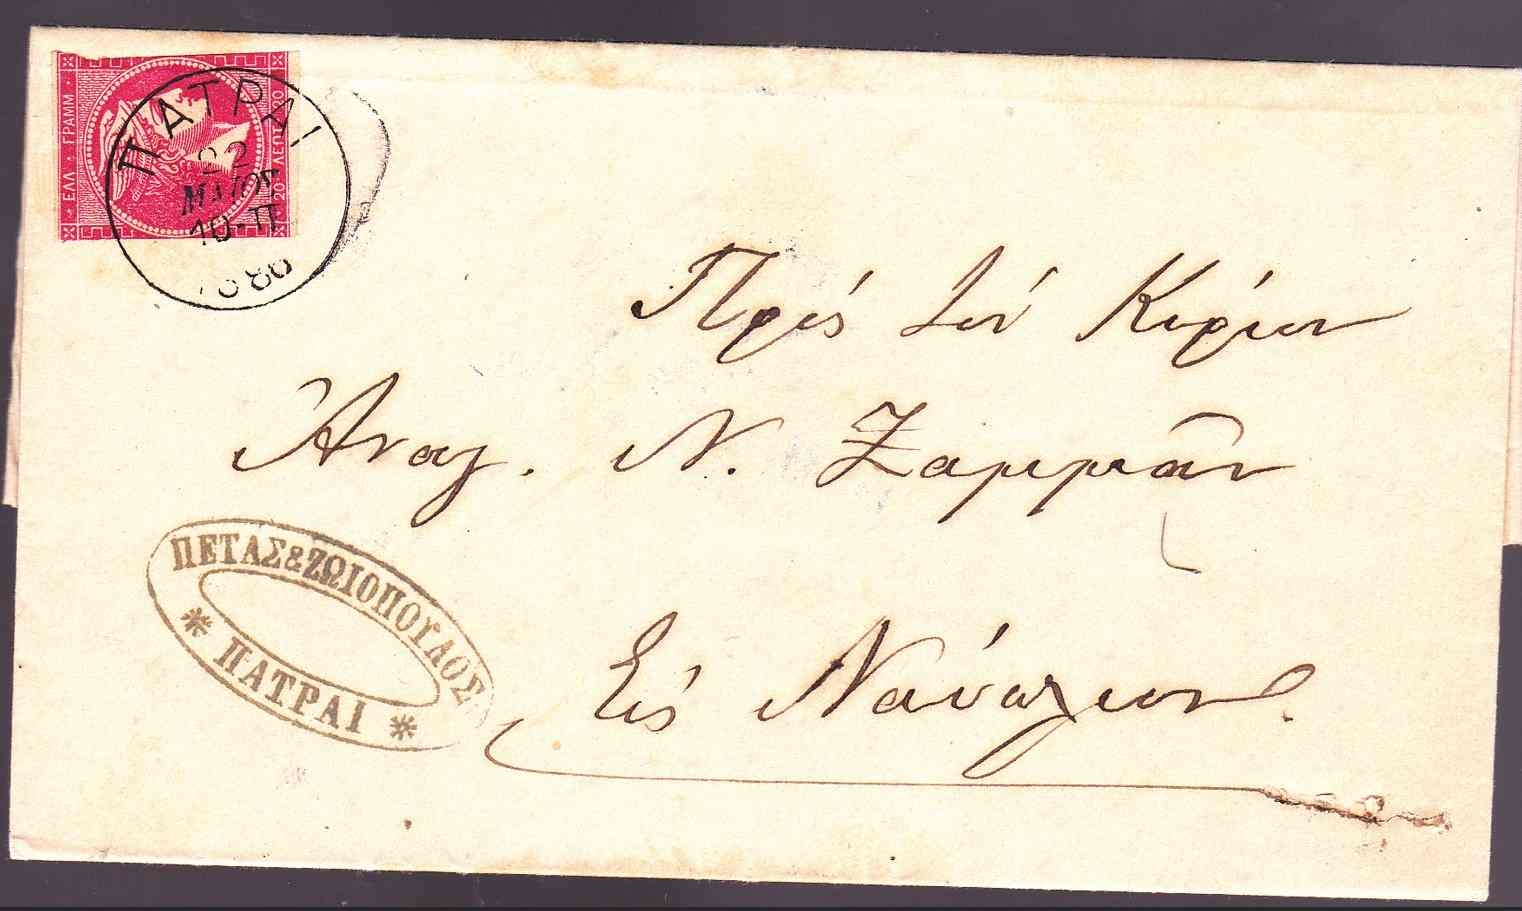 ΕΛΛ. ΓΡΑΜΜ.
20 ΛΕΠΤ. 20
ΠΑΤΡΑΙ
22
ΜΑΙΟΣ
10-Π
1886
Πρός τόν Κύριον
Ἀναγ. Ν. Ζαμμιᾶν
Εἰς Ναύπλιον
ΠΕΤΑΣ & ΖΩΙΟΠΟΥΛΟΣ
* ΠΑΤΡΑΙ *